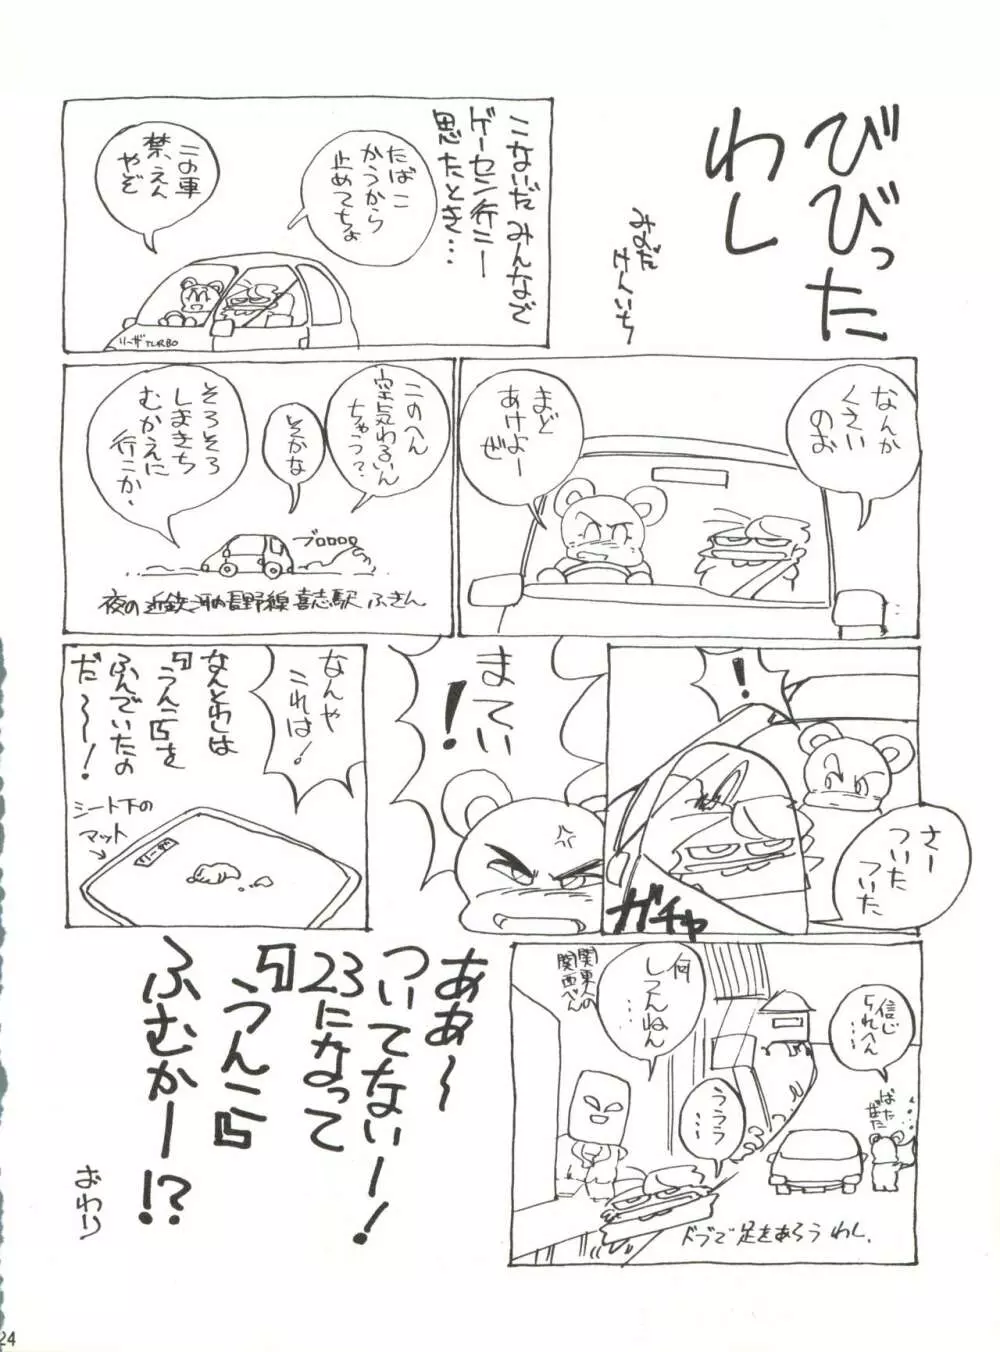 びびった
わし
みのだ
けんいち
こないだ みんなで
ゲーセン行こー
思たとき…
たばこ
かうから
止めてちょ
この車
禁えん
やぞ
リーザ TURBO
なんか
くさい
のお
まど
あけよー
ぜ
このへん
空気わるいん
ちゃう?
そかな
そろそろ
しまきち
むかえに
行こか.
ブロロロロ
夜の近鉄河内長野線喜志駅ふきん
!
さー
ついた
ついた
ガチャ
まてい
!
なんや
これは!
なんとわしは
『うんこ』を
ふんでいたの
だ〜!
シート下の
マット
リーザ
信じ
られへん
……
ばた
ばた
何
しつんねん
……
関東人の
関西べん
ううう
……
ドブで足をあらうわし.
ああ〜
ついてないー!
23になって
『うんこ』
ふむかー!?
おわり
24